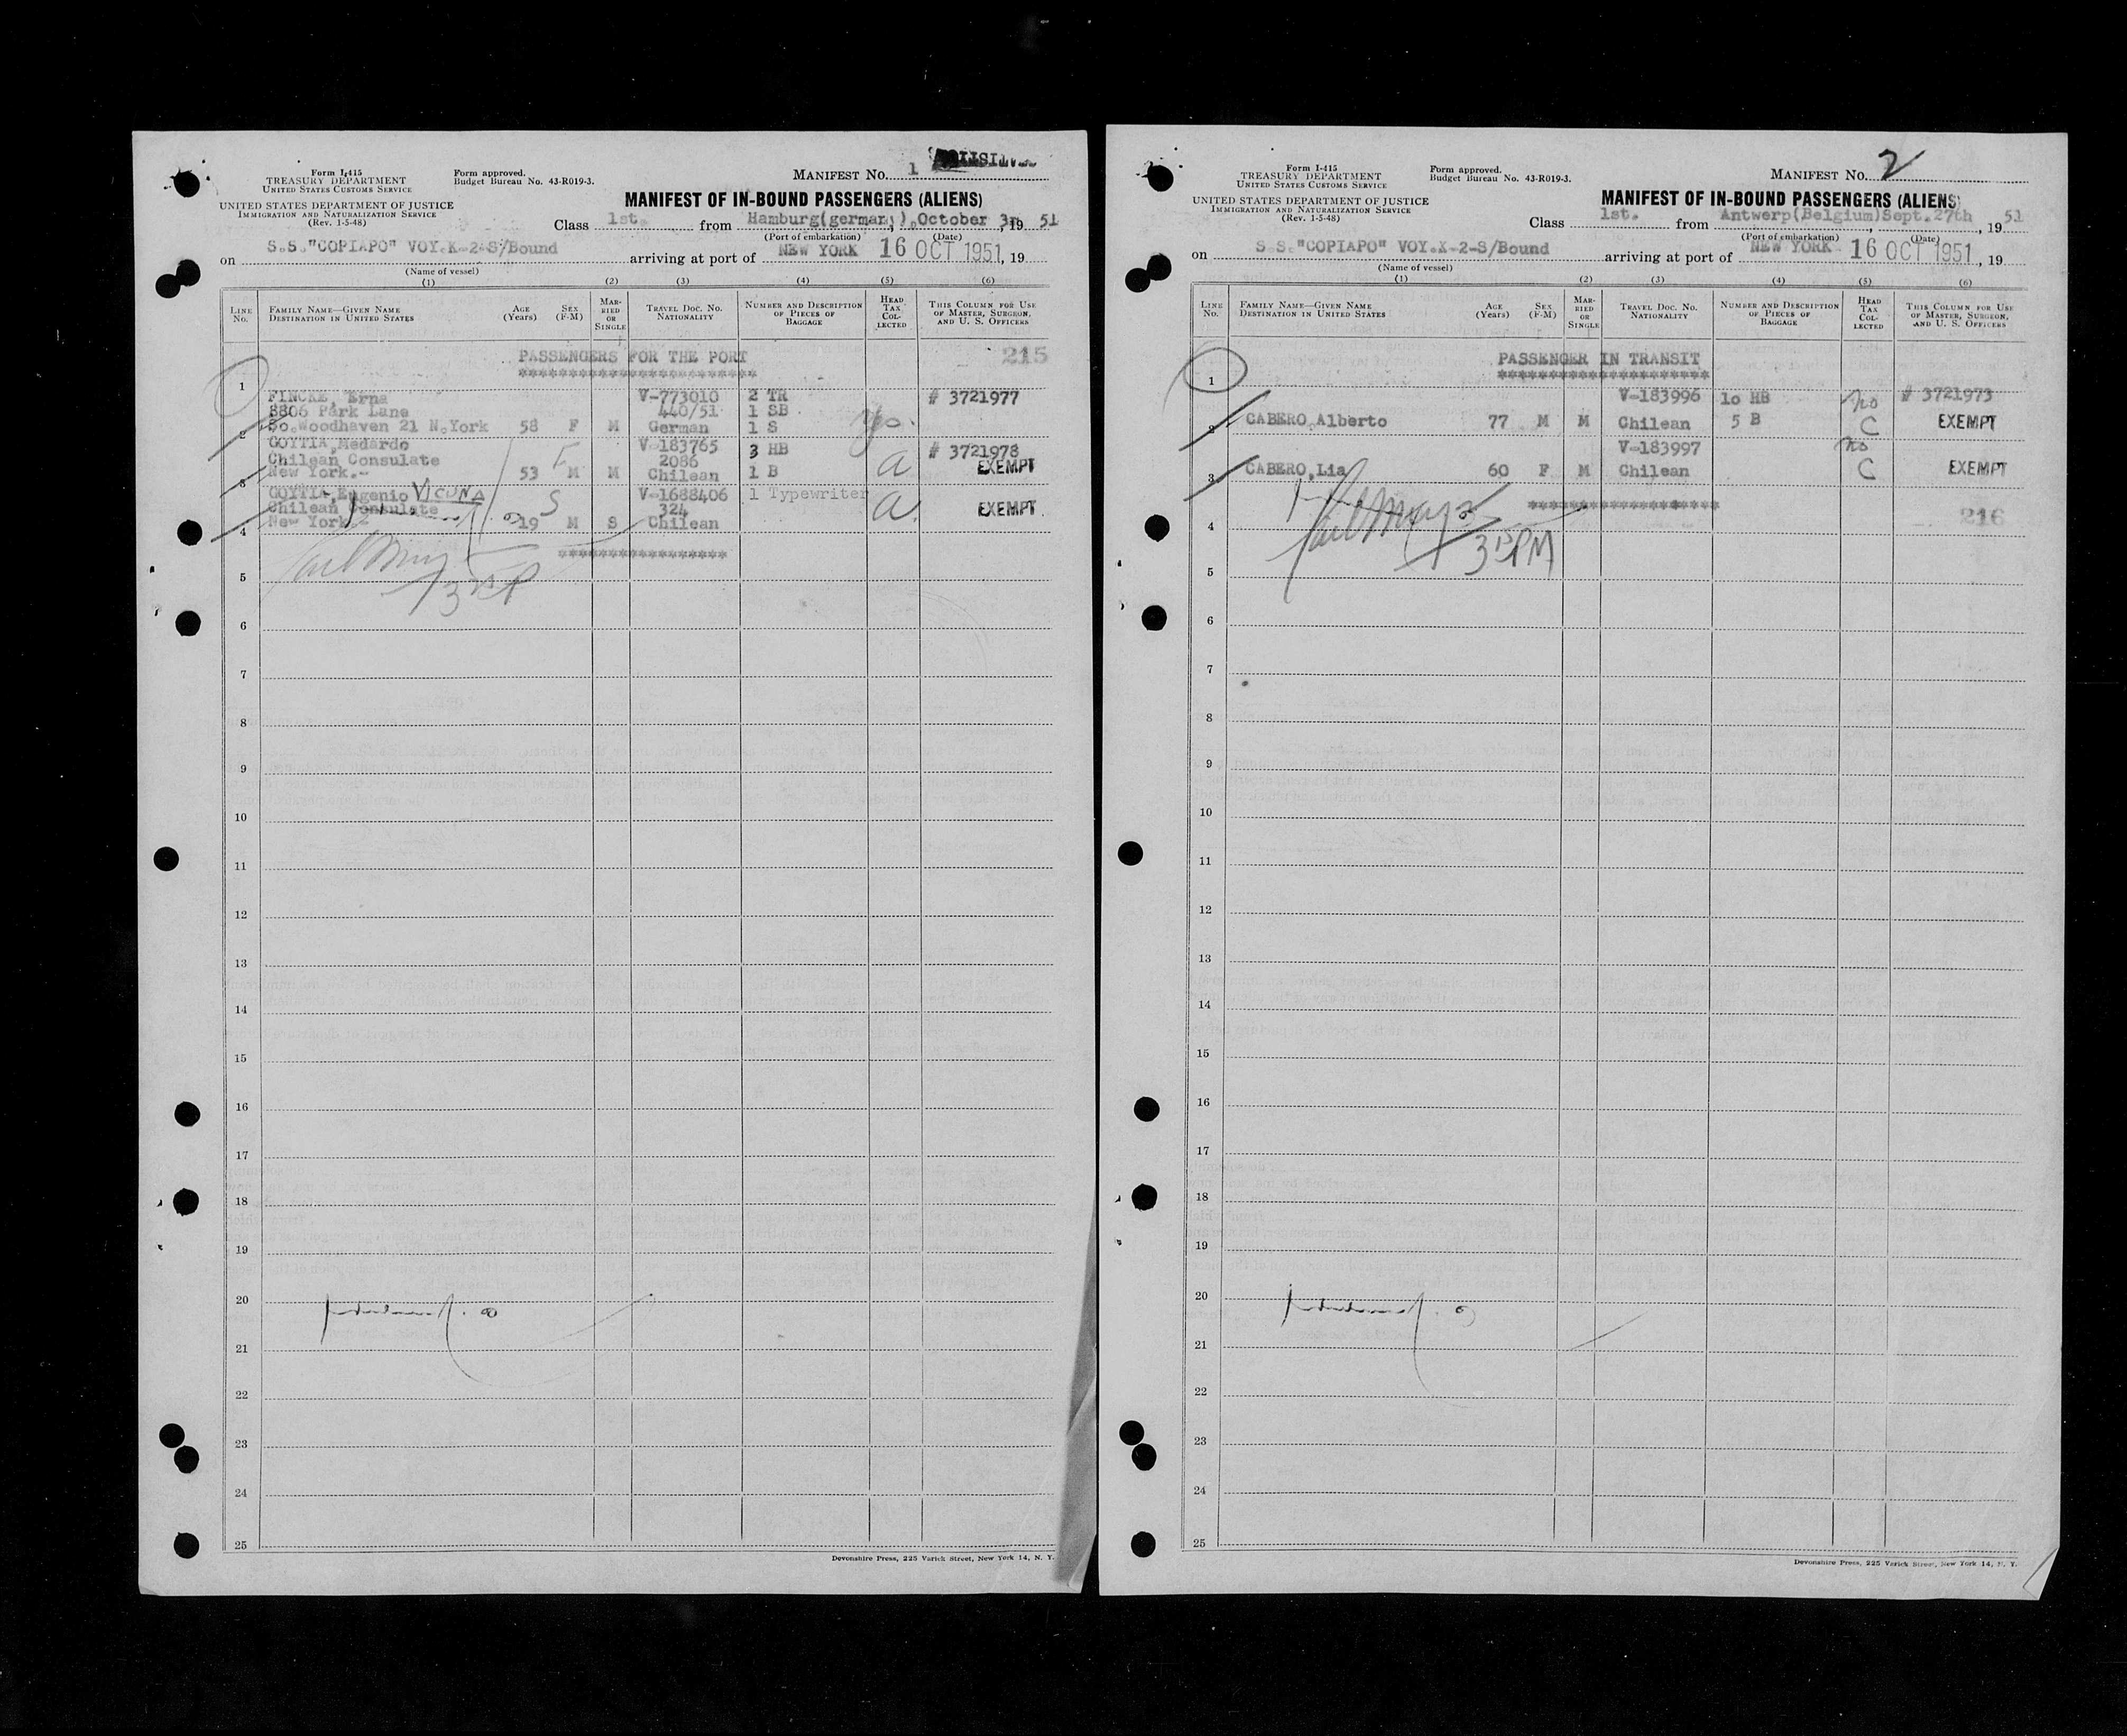 Form I-415
TREASURY DEPARTMENT
UNITED STATES CUSTOMS SERVICE
Form approved.
Budget Bureau No. 43-R019-3.
MANIFEST No. 1
UNITED STATES DEPARTMENT OF JUSTICE
IMMIGRATION AND NATURALIZATION SERVICE
(Rev. 1-5-48)
MANIFEST OF IN-BOUND PASSENGERS (ALIENS)
Class 1st. from Hamburg(germany), October 3, 19 51
(Port of embarkation) (Date)
on S.S. "COPIAPO" VOY.K-2-S/Bound arriving at port of NEW YORK 16 OCT 1951, 19
(Name of vessel)
(1) (2) (3) (4) (5) (6)
LINE No. FAMILY NAME—GIVEN NAME DESTINATION IN UNITED STATES AGE (Years) SEX (F-M) MARRIED OR SINGLE TRAVEL DOC. No. NATIONALITY NUMBER AND DESCRIPTION OF PIECES OF BAGGAGE HEAD TAX COLLECTED THIS COLUMN FOR USE OF MASTER, SURGEON, AND U. S. OFFICERS
PASSENGERS FOR THE PORT 215
***********************
1
FINCKE, Erna V-773010 2 TR # 3721977
8806 Park Lane 440/51 1 SB
2 So.Woodhaven 21 N.York 58 F M German 1 S yes.
GOYTIA,Medardo V-183765 3 HB # 3721978
Chilean Consulate 2086 a EXEMPT
3 New York.- 53 M M Chilean 1 B
GOYTIA,Eugenio VICUNA S V-1688406 1 Typewriter a
Chilean Consulate 324 EXEMPT
4 New York.- 19 M S Chilean
****************
5
6
7
8
9
10
11
12
13
14
15
16
17
18
19
20
21
22
23
24
25
Devonshire Press, 225 Varick Street, New York 14, N. Y.
Form I-415
TREASURY DEPARTMENT
UNITED STATES CUSTOMS SERVICE
Form approved.
Budget Bureau No. 43-R019-3.
MANIFEST No. 2
UNITED STATES DEPARTMENT OF JUSTICE
IMMIGRATION AND NATURALIZATION SERVICE
(Rev. 1-5-48)
MANIFEST OF IN-BOUND PASSENGERS (ALIENS)
Class 1st. from Antwerp(Belgium)Sept.27th, 19 51
(Port of embarkation) (Date)
on S S. "COPIAPO" VOY.K-2-S/Bound arriving at port of NEW YORK 16 OCT 1951, 19
(Name of vessel)
(1) (2) (3) (4) (5) (6)
LINE No. FAMILY NAME—GIVEN NAME DESTINATION IN UNITED STATES AGE (Years) SEX (F-M) MARRIED OR SINGLE TRAVEL DOC. No. NATIONALITY NUMBER AND DESCRIPTION OF PIECES OF BAGGAGE HEAD TAX COLLECTED THIS COLUMN FOR USE OF MASTER, SURGEON, AND U. S. OFFICERS
PASSENGER IN TRANSIT
*********************
1
V-183996 10 HB no # 3721973
2 CABERO,Alberto 77 M M Chilean 5 B C EXEMPT
V-183997 no
3 CABERO,Lia 60 F M Chilean C EXEMPT
*******************
4 216
5 PM
6
7
8
9
10
11
12
13
14
15
16
17
18
19
20
21
22
23
24
25
Devonshire Press, 225 Varick Street, New York 14, N. Y.